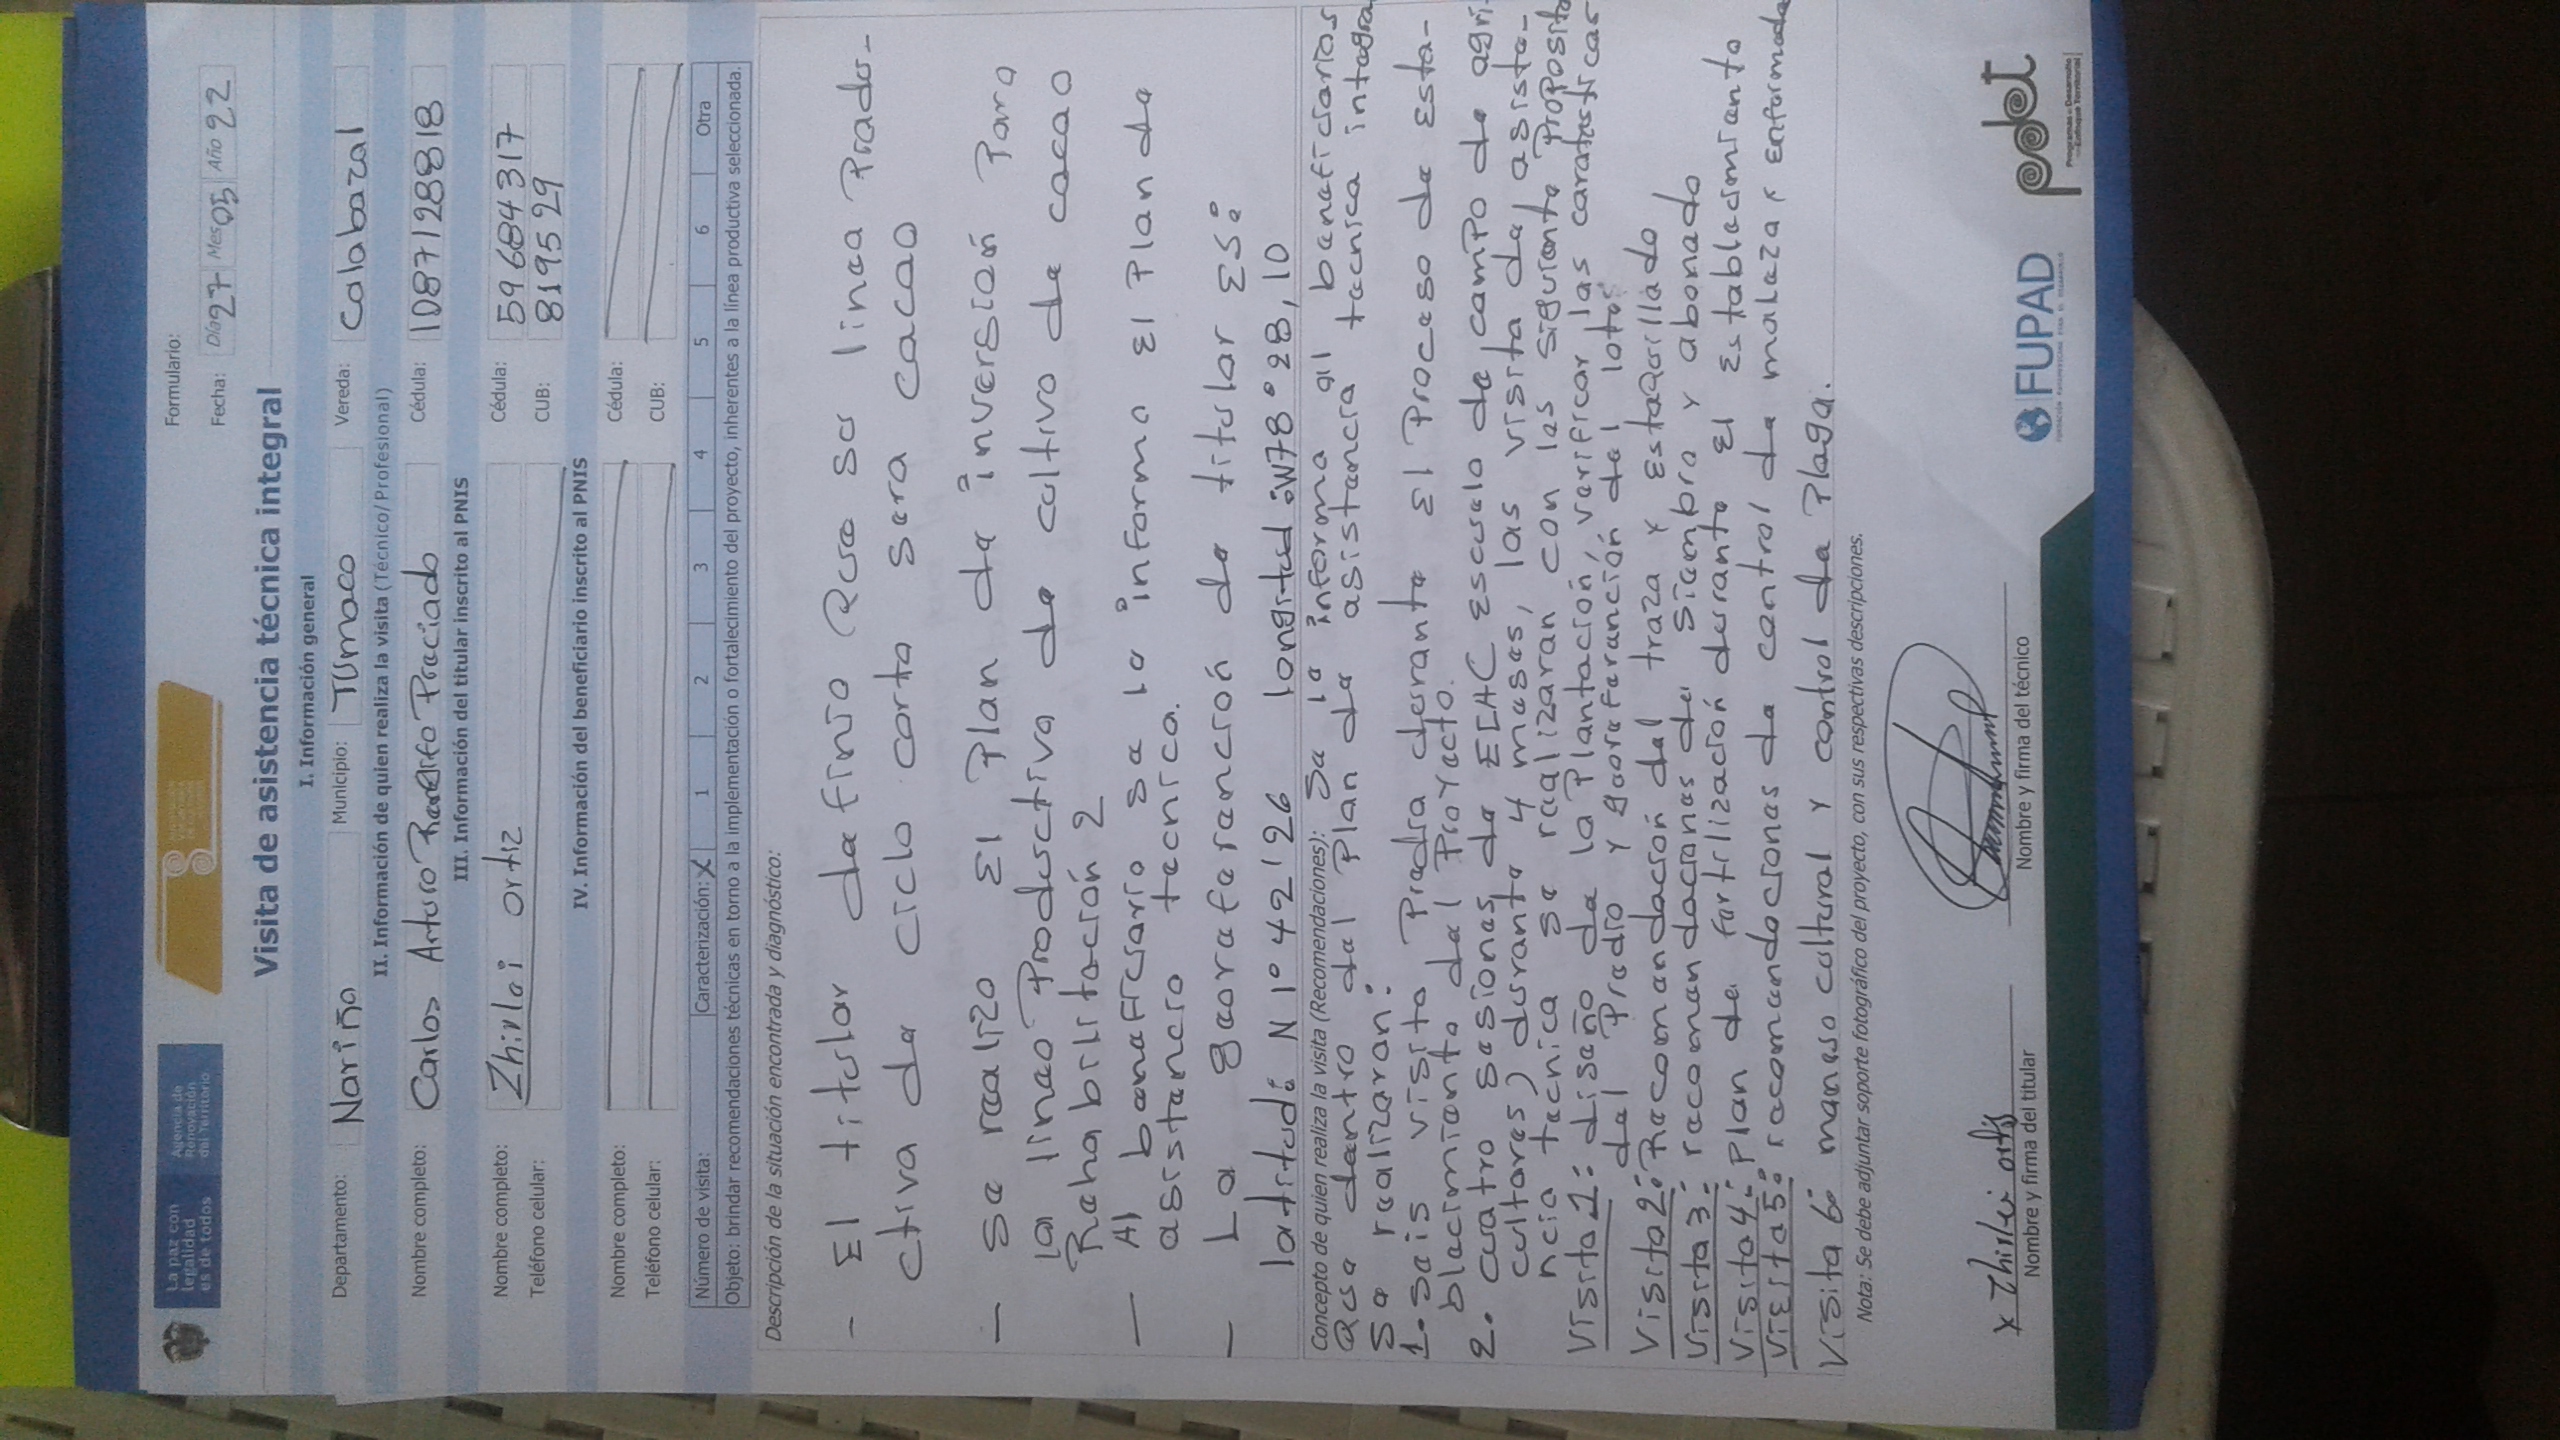 La paz con
legalidad
es de todos
Agencia de
Renovación
del Territorio
Formulario:
Visita de asistencia técnica integral
Fecha: Día 27 Mes 05 Año 22
I. Información general
Departamento: Nariño Municipio: Tumaco Vereda: Calabazal
II. Información de quien realiza la visita (Técnico/Profesional)
Nombre completo: Carlos Arturo Preciado Cédula: 1087128818
III. Información del titular inscrito al PNIS
Nombre completo: Zhirlei ortiz Cédula: 59684317
Teléfono celular: CUB: 819529
IV. Información del beneficiario inscrito al PNIS
Nombre completo: Cédula:
Teléfono celular: CUB:
Número de visita: Caracterización: X 1 2 3 4 5 6 Otra
Objeto: brindar recomendaciones técnicas en torno a la implementación o fortalecimiento del proyecto, inherentes a la línea productiva seleccionada.
Descripción de la situación encontrada y diagnóstico:
- El titular definio Que su linea Produ-
ctiva de ciclo corto sera cacao
- se realizo El Plan de inversión Para
la linea Productiva de cultivo de cacao
Rehabilitación 2
- Al beneficiario se le informo El Plan de
asistencia tecnica.
- La georeferención de titular Es:
latitud: N1°42'26 longitud: W78°28,10
Concepto de quien realiza la visita (Recomendaciones): Se le informa al beneficiarios
Que dentro del Plan de asistencia tecnica integra
Se realizaran:
1. Seis visita Predio durante El Proceso de Esta-
blecimiento del Proyecto.
2. cuatro sesiones de ECAC Escuela de campo de agri-
cultores) durante 4 meses, las visita de asiste-
ncia tecnica se realizaran con las siguiente Proposito
Visita 1: diseño de la Plantación, verificar las caracteristicas
del Predio y georeferención del lote.
Visita 2: Recomendación del traza y Estaquillado
Visita 3: recomendaciones de siembra y abonado
Visita 4: Plan de fertilización durante El Establecimiento
Visita 5: recomendaciones de control de maleza y Enfermeda
Visita 6: manejo cultural y control de Plaga.
Nota: Se debe adjuntar soporte fotográfico del proyecto, con sus respectivas descripciones.
x Zhirlei ortiz
Nombre y firma del titular
Nombre y firma del técnico
FUPAD
pdet
Programas de Desarrollo
con Enfoque Territorial